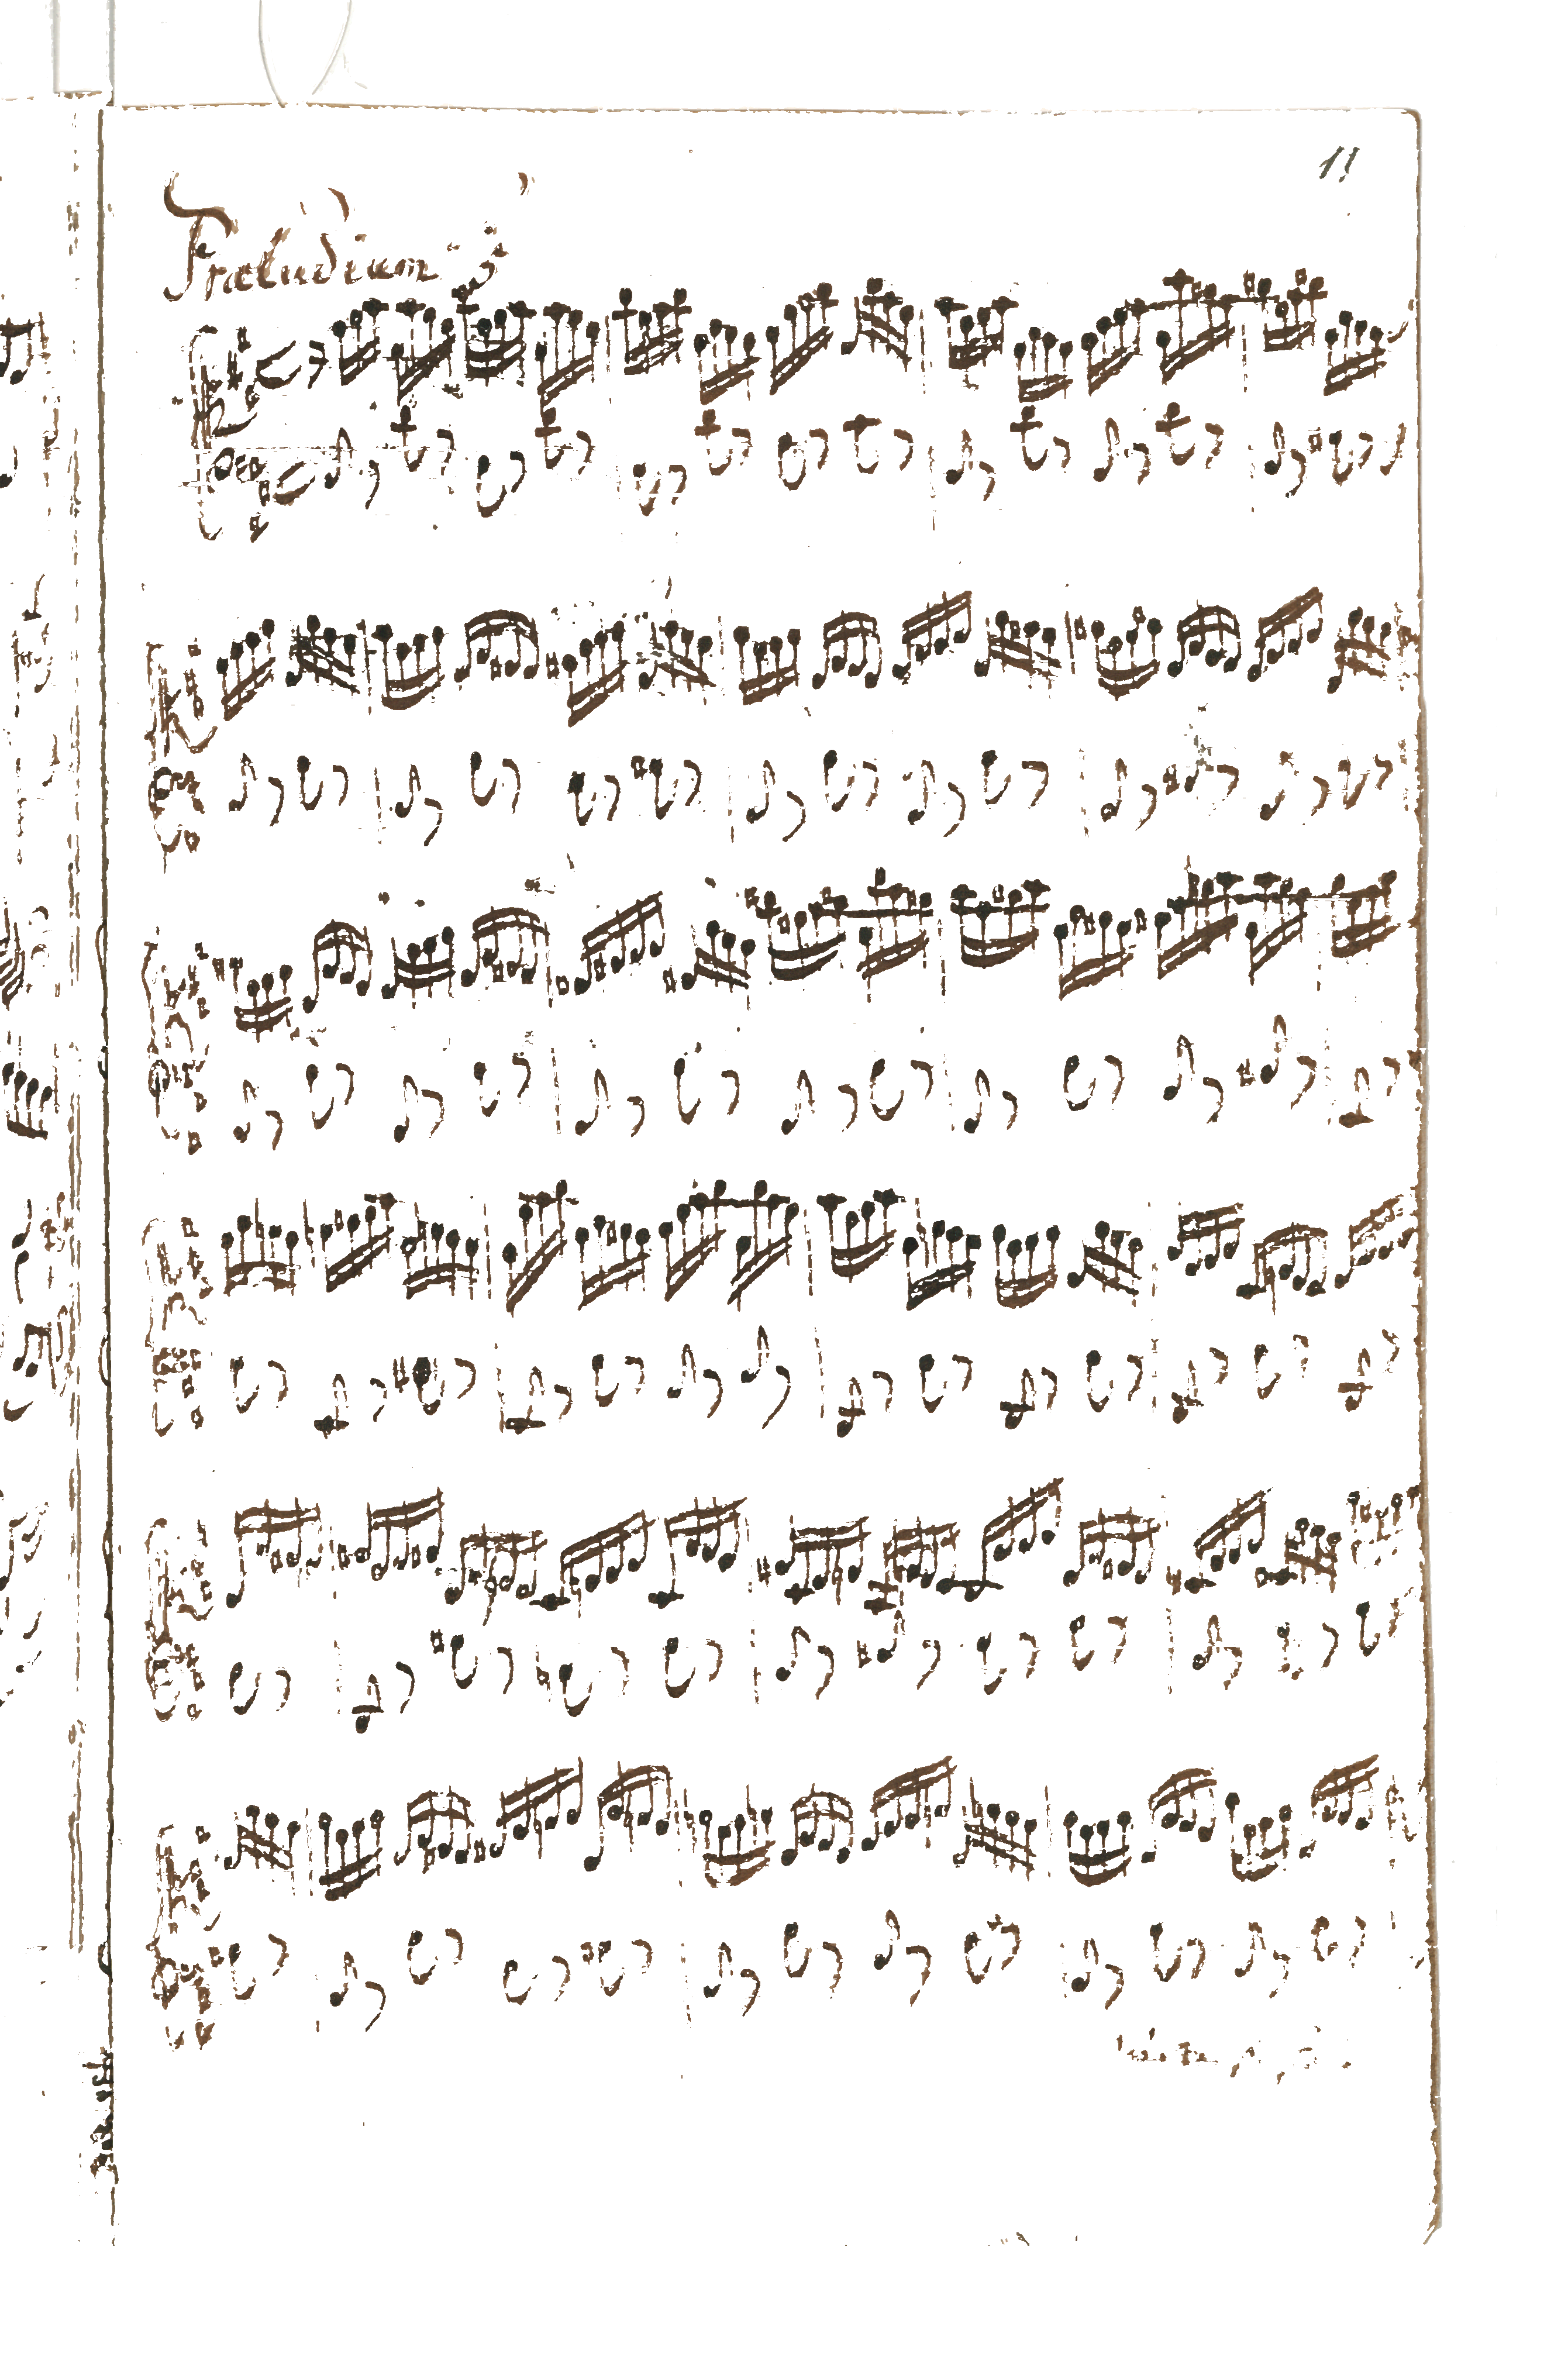 11
Præludium 5